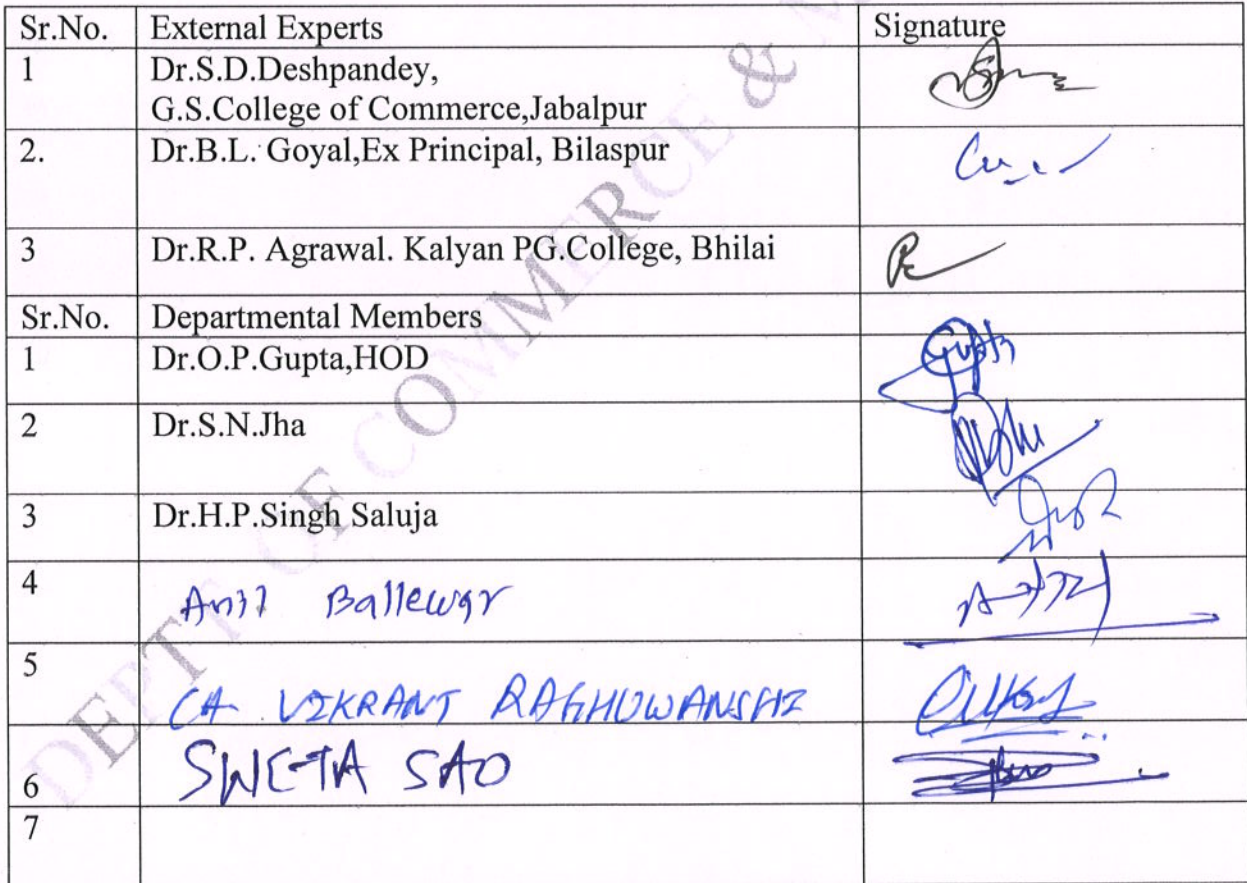 Sr.No. External Experts Signature
1 Dr.S.D.Deshpandey,
G.S.College of Commerce,Jabalpur
2. Dr.B.L. Goyal,Ex Principal, Bilaspur
3 Dr.R.P. Agrawal. Kalyan PG.College, Bhilai
Sr.No. Departmental Members
1 Dr.O.P.Gupta,HOD Gupta
2 Dr.S.N.Jha
3 Dr.H.P.Singh Saluja
4 Anil Ballewar
5 CA VIKRANT RAGHUWANSHI
6 SWETA SAO
7
DEPTT OF COMMERCE &